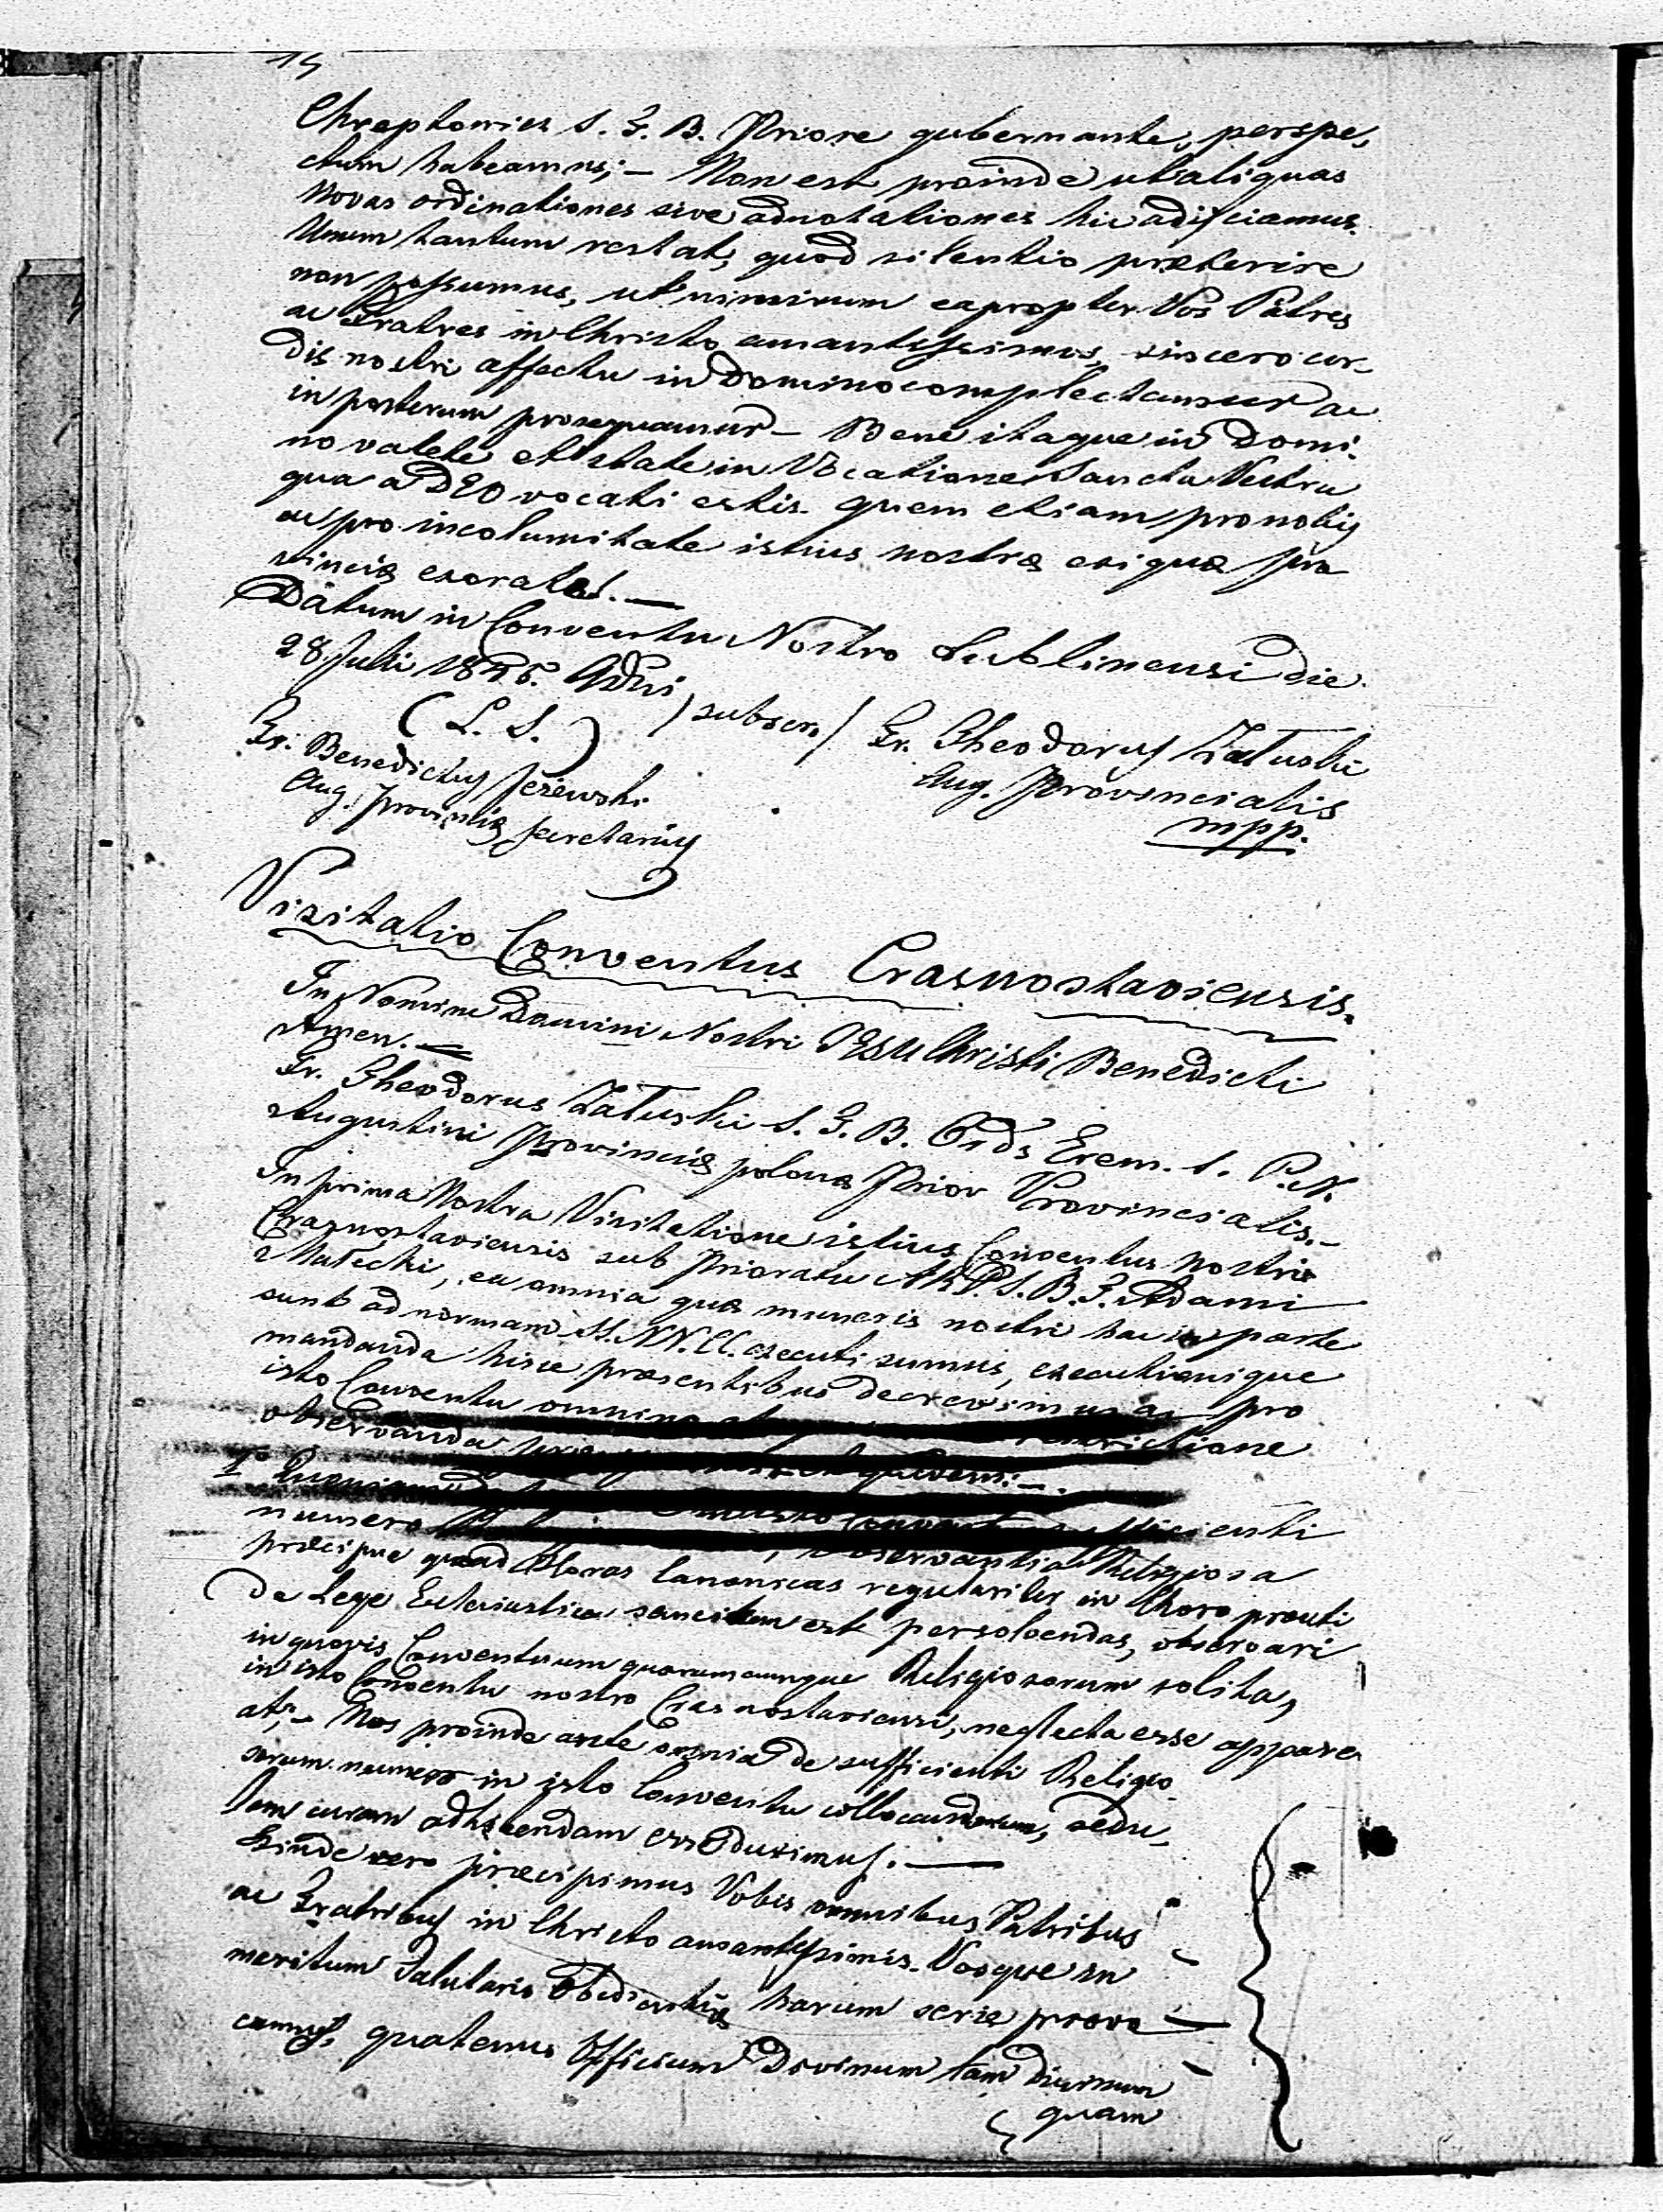 14
Chreptowicz S. T. B. Priore gubernante, perspe,
ctum habeamus; – Non est proinde ut aliquas
novas ordinationes sive adnotationes hic adijciamus.
Unum tantum restat, quod silentio præterire
non possumus, ut nimirum eapropter Vos Patres
ac Fratres in Christo amantissimos, sincero cor-
dis nostri affectu in Domino complectamur ac
in posterum prosequamur – Bene itaque in Domi-
no valete et state in Vocatione Sancta Vestra
qua a DEO vocati estis quem etiam pro nobis
ac pro incolumitate istius nostræ exiguæ Pro
vinciæ exorate. —
Datum in Conventu Nostro Lublinensi die
28 Julii Adni
(L. S.) /subscr./ Fr. Theodorus Załuski
Fr. Benedictus Jeżewski Aug. Provincialis
Aug. Provinciæ Secretarius mpp.
Visitatio Conventus Crasnostaviensis.
In Nomine Domini Nostri JESU Christi Benedicti
Amen. —
Fr. Theodorus Załuski S. T. B. Ords Erem. S. P. N.
Augustini Provinciæ polonæ Prior Provincialis. –
In prima Nostra Visitatione istius Conventus nostri
Crasnostaviensis sub Prioratu S. B. T. Adami
Małecki, ea omnia quæ muneris nostri hac in parte
sunt ad normam SS. NN. CC. executi sumus, executionique
mandanda hisce præsentibus decrevimus ac pro
isto Conventu omnino
observanda
1º Quoniam Conventu sufficienti
numero observantia Religiosa
præcipue quoad Horas Canonicas regulariter in Choro prouti
de Lege Ecclesiastica sancitum est persolvendas, observari
in quovis Conventuum quorumcumque Religiosorum solita,
in isto Conventu nostro Crasnostaviensi, neglecta esse appare
at; – Nos proinde ante omnia de sufficienti Religio-
sorum numero in isto Conventu collocandorum, sedu-
lam curam adhibendam esse duximus. —
Exinde vero præcipimus Vobis omnibus Patribus
ac Fratribus in Christo amantissimis. Vosque in
meritum Salutaris Obedientiæ harum serie provo
camus, quatenus Officium Divinum tam diurnum
quam